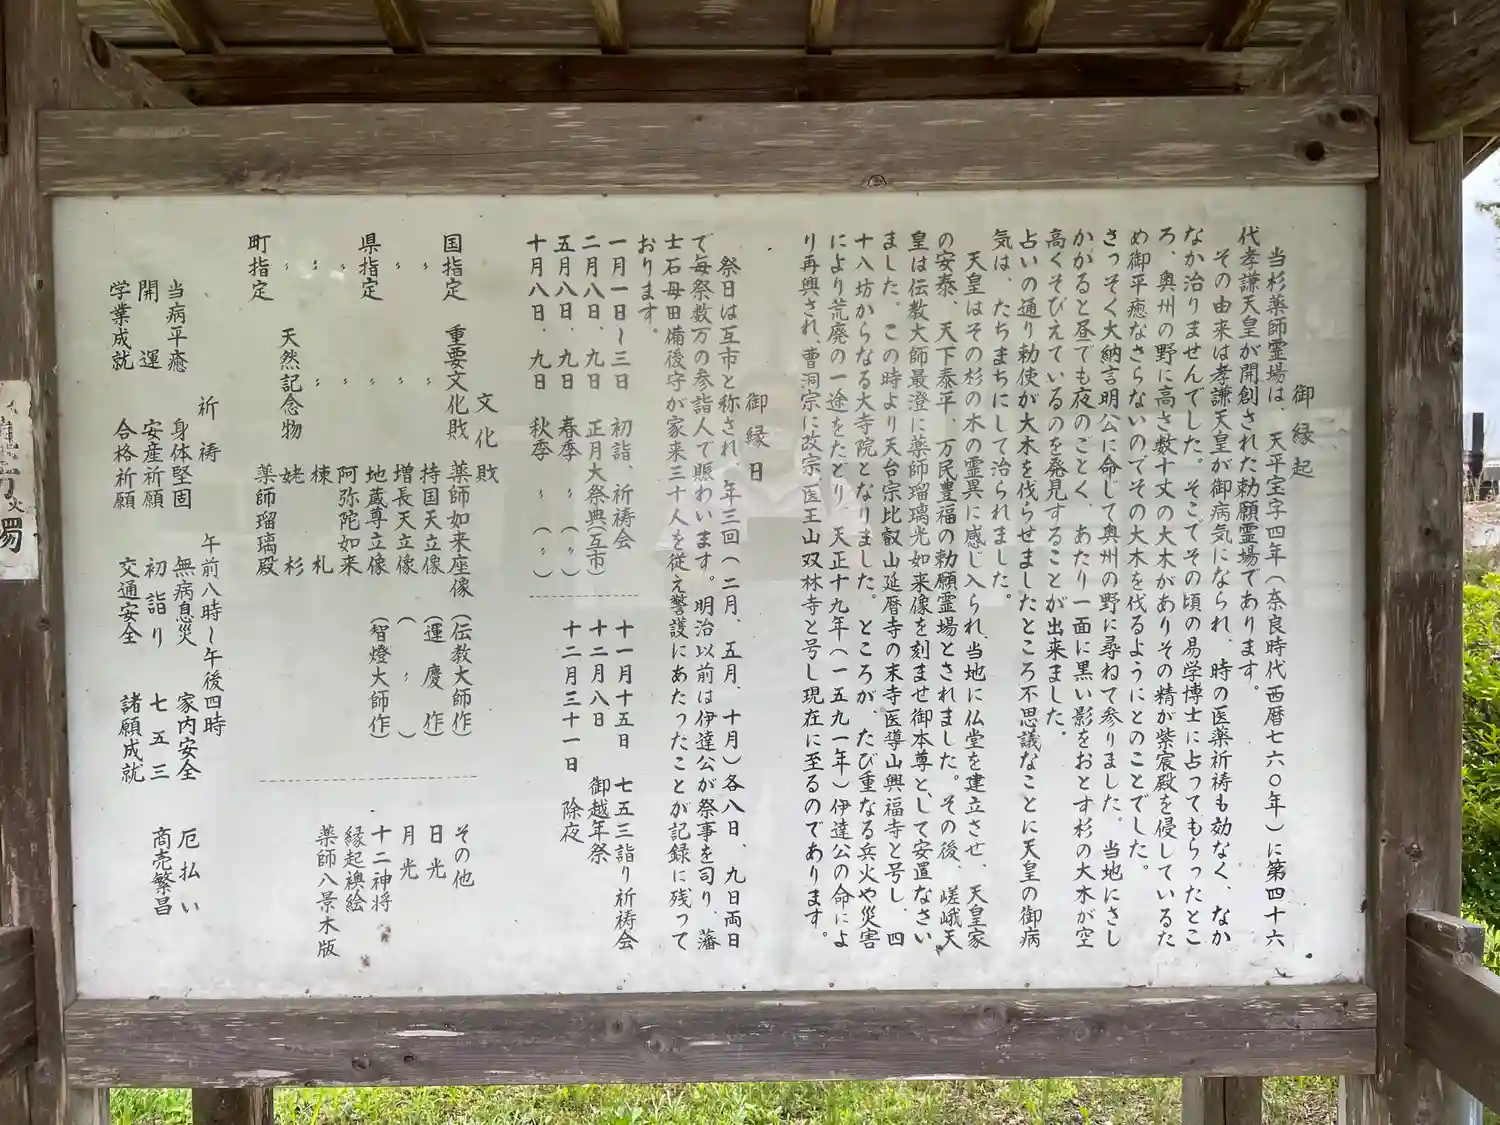 御縁起
当杉薬師霊場は、天平宝字四年(奈良時代西暦七六〇年)に第四十六
代孝謙天皇が開創された勅願霊場であります。
その由来は孝謙天皇が御病気になられ、時の医薬祈祷も効なく、なか
なか治りませんでした。そこでその頃の易学博士に占ってもらったとこ
ろ、奥州の野に高さ数十丈の大木がありその精が紫宸殿を侵しているた
め御平癒なさらないのでその大木を伐るようにとのことでした。
さっそく大納言明公に命じて奥州の野に尋ねて参りました。当地にさし
かかると昼でも夜のごとく、あたり一面に黒い影をおとす杉の大木が空
高くそびえているのを発見することが出来ました。
占いの通り勅使が大木を伐らせましたところ不思議なことに天皇の御病
気は、たちまちにして治られました。
天皇はその杉の木の霊異に感じ入られ、当地に仏堂を建立させ、天皇家
の安泰、天下泰平、万民豊福の勅願霊場とされました。その後、嵯峨天
皇は伝教大師最澄に薬師瑠璃光如来像を刻ませ御本尊として安置なさい
ました。この時より天台宗比叡山延暦寺の末寺医導山興福寺と号し、四
十八坊からなる大寺院となりました。ところが、たび重なる兵火や災害
により荒廃の一途をたどり、天正十九年(一五九一年)伊達公の命によ
り再興され、曹洞宗に改宗、医王山双林寺と号し現在に至るのであります。
御縁日
祭日は互市と称され、年三回(二月、五月、十月)各八日、九日両日
で毎祭数万の参詣人で賑わいます。明治以前は伊達公が祭事を司り、藩
士石母田備後守が家来三十人を従え警護にあたったことが記録に残って
おります。
一月一日〜三日 初詣、祈祷会 十一月十五日 七五三詣り祈祷会
二月八日、九日 正月大祭典(互市) 十二月八日 御越年祭
五月八日、九日 春季 〃 (〃) 十二月三十一日 除夜
十月八日、九日 秋季 〃 (〃)
文化財
国指定 重要文化財 薬師如来座像 (伝教大師作) その他
〃 〃 持国天立像 (運慶作) 日光
〃 〃 増長天立像 ( 〃 ) 月光
県指定 〃 地蔵尊立像 (智燈大師作) 十二神将
〃 〃 阿弥陀如来 縁起襖絵
〃 〃 棟札 薬師八景木版
〃 天然記念物 姥杉
町指定 薬師瑠璃殿
祈祷 午前八時〜午後四時
当病平癒 身体堅固 無病息災 家内安全 厄払い
開運 安産祈願 初詣り 七五三 商売繁昌
学業成就 合格祈願 交通安全 諸願成就